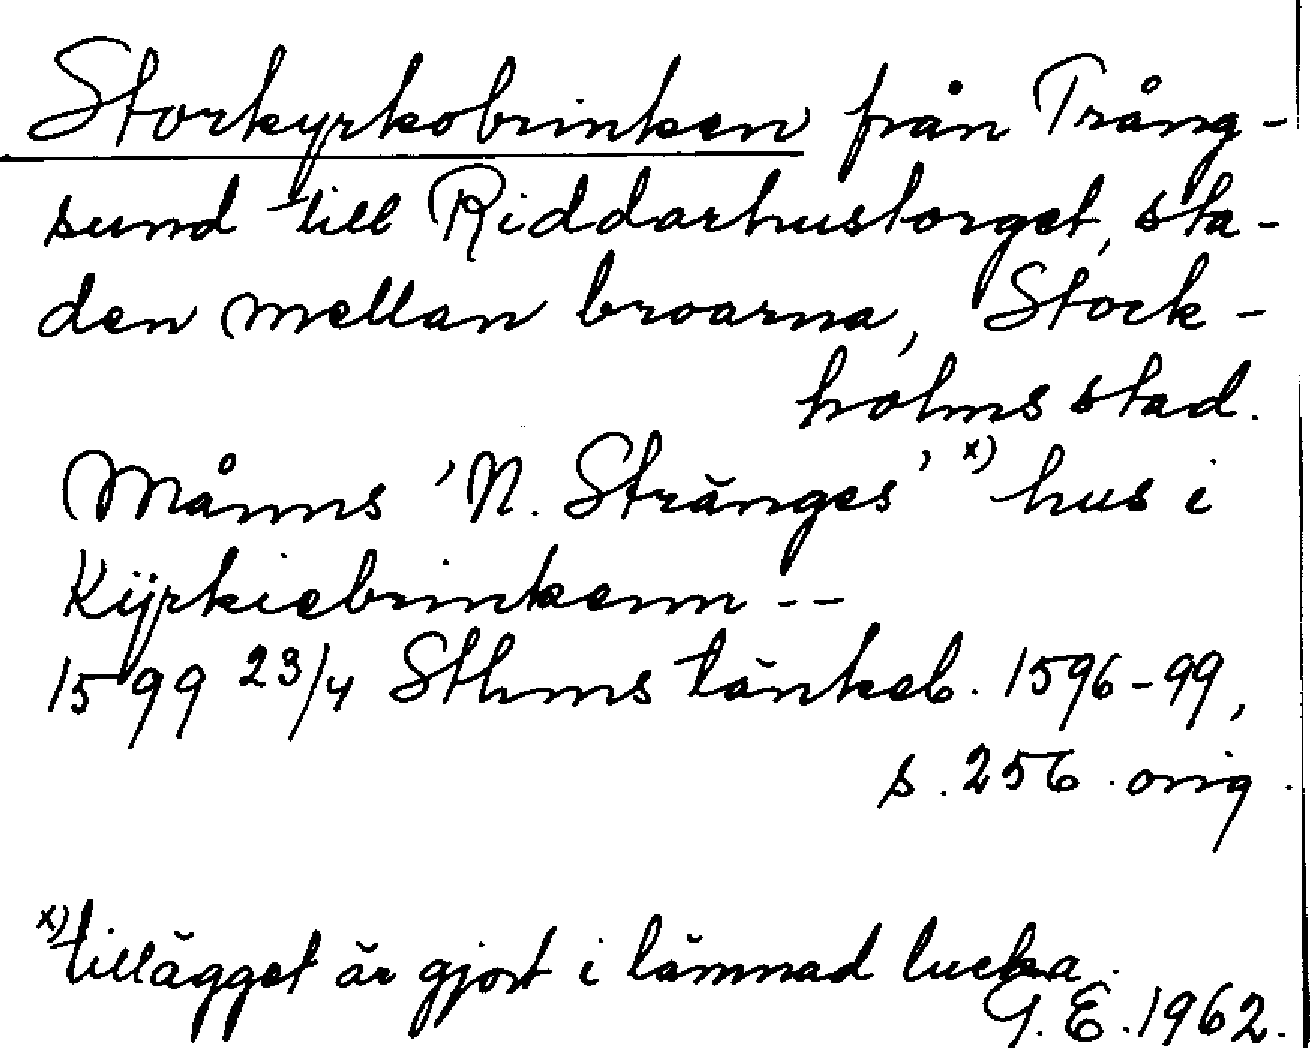 Storkyrkobrinken från Trång-
sund till Riddarhustorget, sta-
den mellan broarna, Stock-
holms stad.
Månns 'N. Stränges' x) hus i
Kijrkiebrinkenn --
1599 23/4 Sthms tänkeb. 1596-99,
s. 256. orig.
x) tillägget är gjort i lämnad lucka.
G. E. 1962.